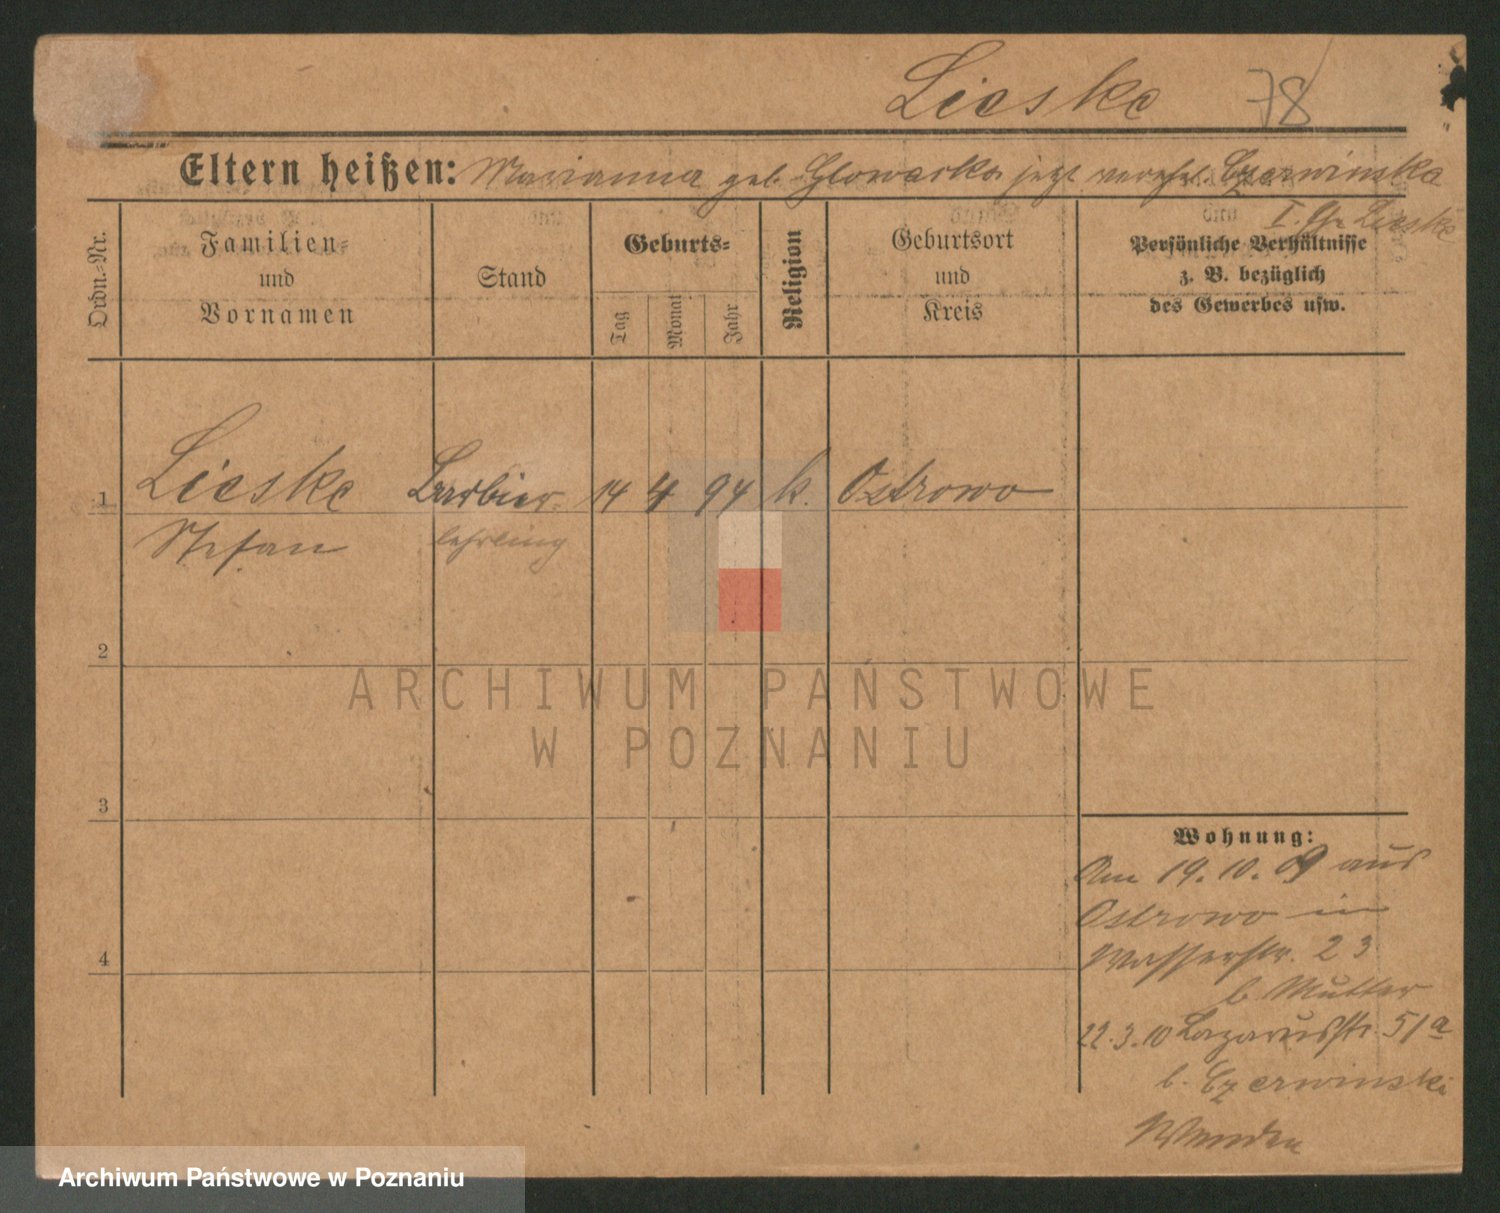 Lieske 78
Eltern heißen: Marianna geb. Glowacka jetzt vereh. Czerwinska
I. Lieske
Ordn.-Nr.
Familien-
und
Vornamen
Stand
Geburts-
Tag
Monat
Jahr
Religion
Geburtsort
und
Kreis
Persönliche Verhältnisse
z. B. bezüglich
des Gewerbes usw.
1 Lieske Barbier- 14 4 94 k. Ostrowo
Stefan lehrling
2
3
4
Wohnung:
Am 19.10.09 aus
Ostrowo in
Wasserstr. 23
b. Mutter
22.3.10 Lazarusstr. 51a
b. Czerwinski
Wenden
ARCHIWUM PAŃSTWOWE
W POZNANIU
Archiwum Państwowe w Poznaniu